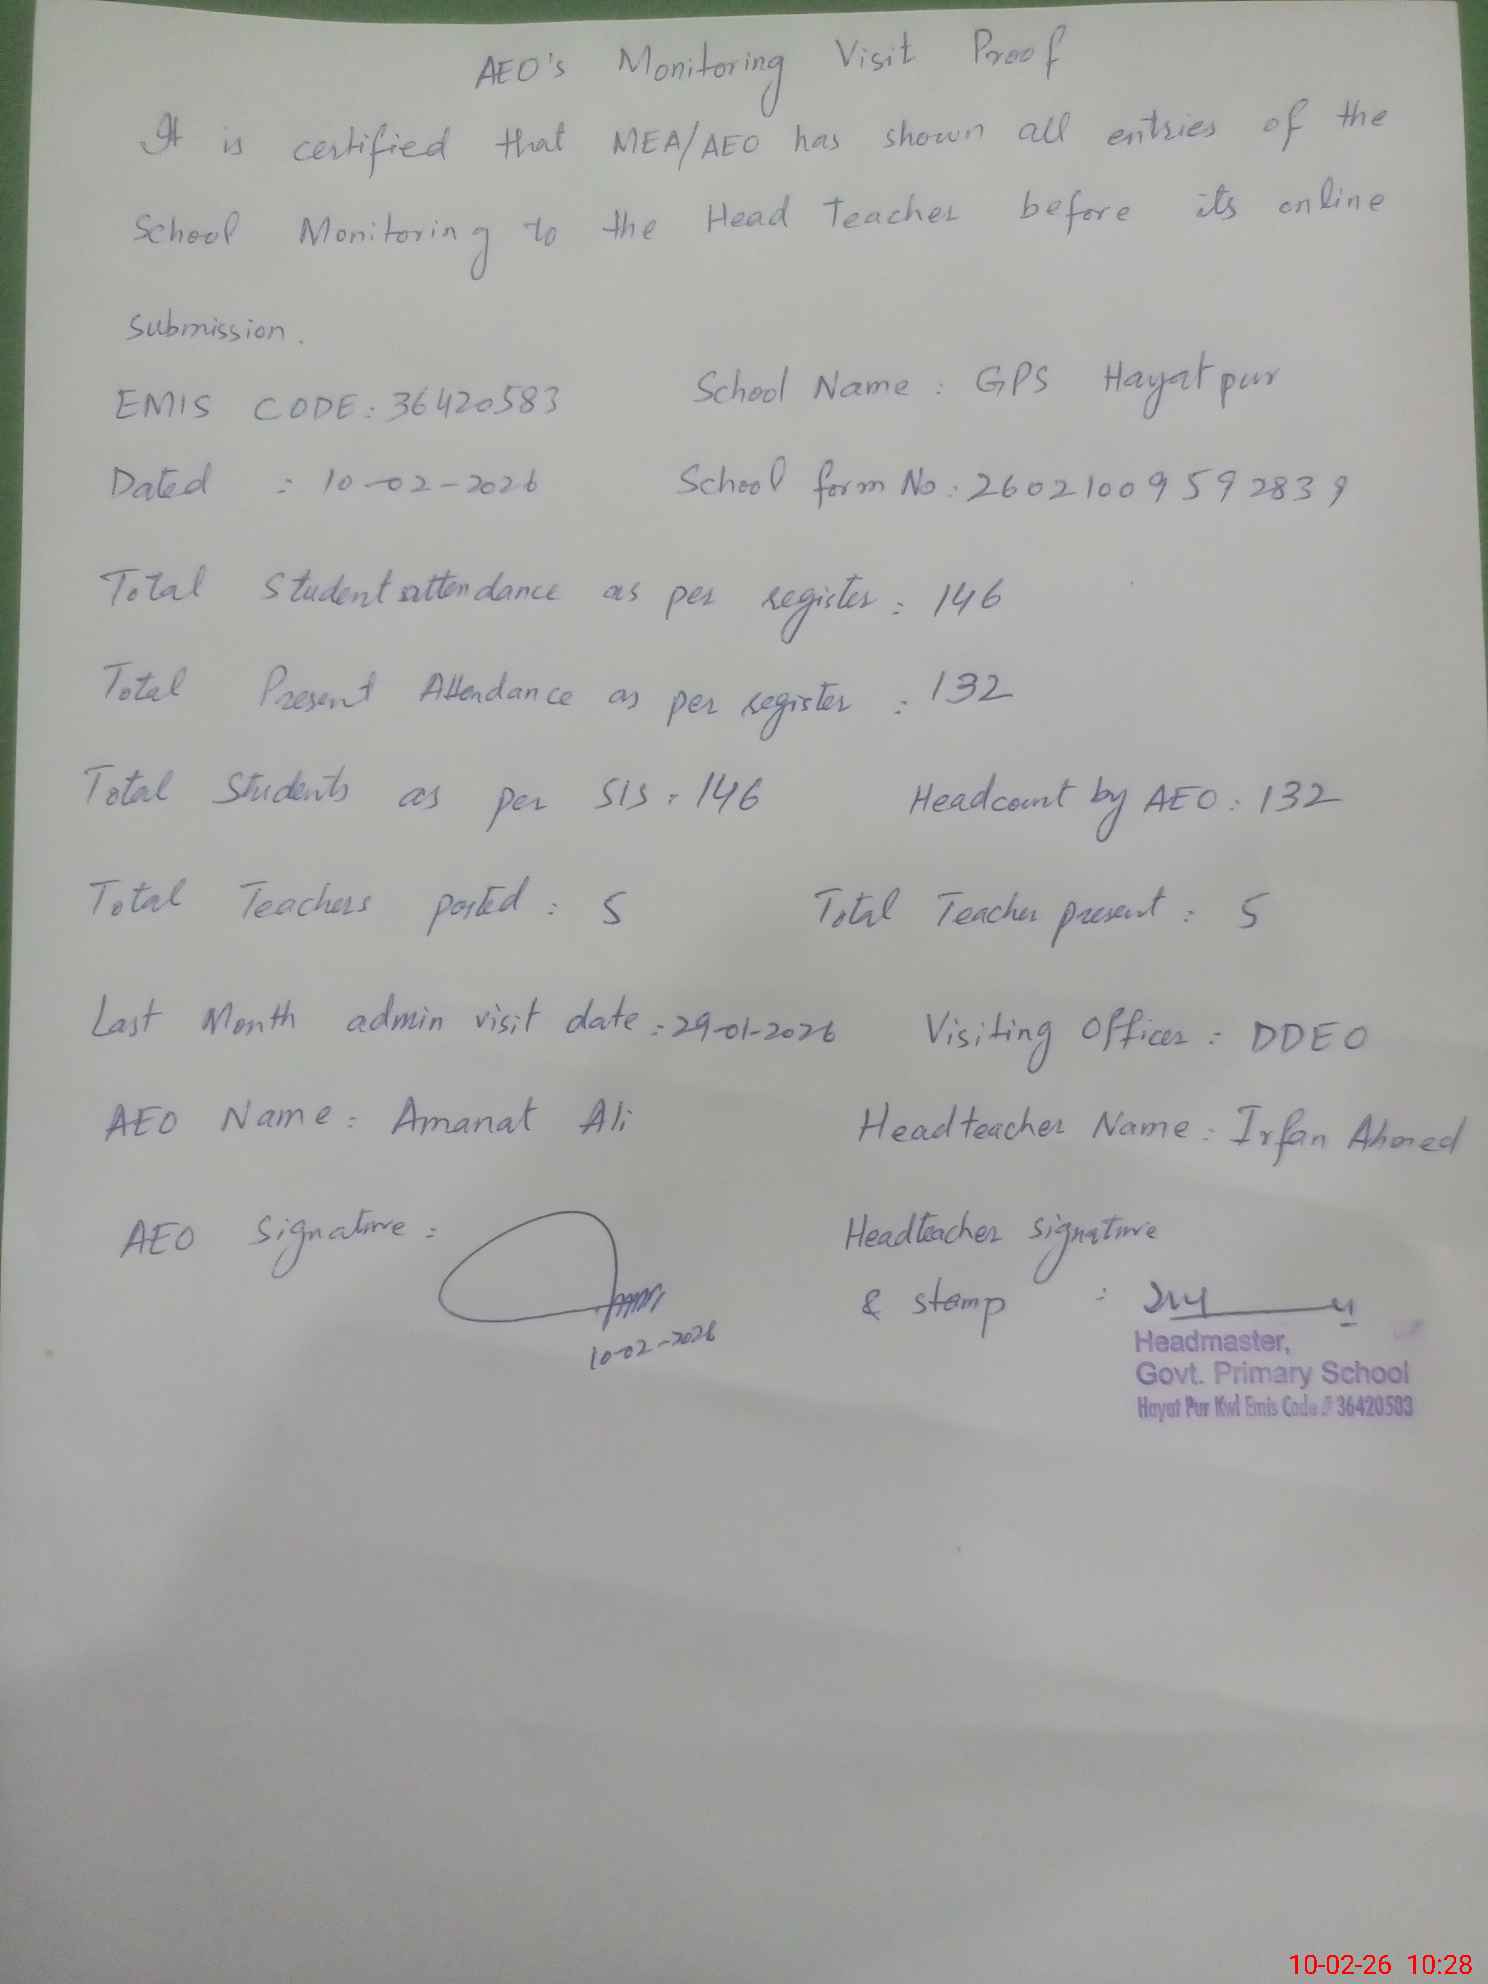 AEO's Monitoring Visit Proof
It is certified that MEA/AEO has shown all entries of the
School Monitoring to the Head Teacher before its online
submission.
EMIS CODE: 36420583 School Name: GPS Hayatpur
Dated : 10-02-2026 School form No: 26021009592839
Total Student attendance as per register: 146
Total Present Attendance as per register : 132
Total Students as per SIS: 146 Headcount by AEO: 132
Total Teachers posted: 5 Total Teacher present: 5
Last Month admin visit date: 29-01-2026 Visiting Officer: DDEO
AEO Name: Amanat Ali Headteacher Name: Irfan Ahmed
AEO Signature: Headteacher signature
& stamp :
10-02-2026
Headmaster,
Govt. Primary School
Hayat Pur Kwl Emis Code # 36420583
10-02-26 10:28